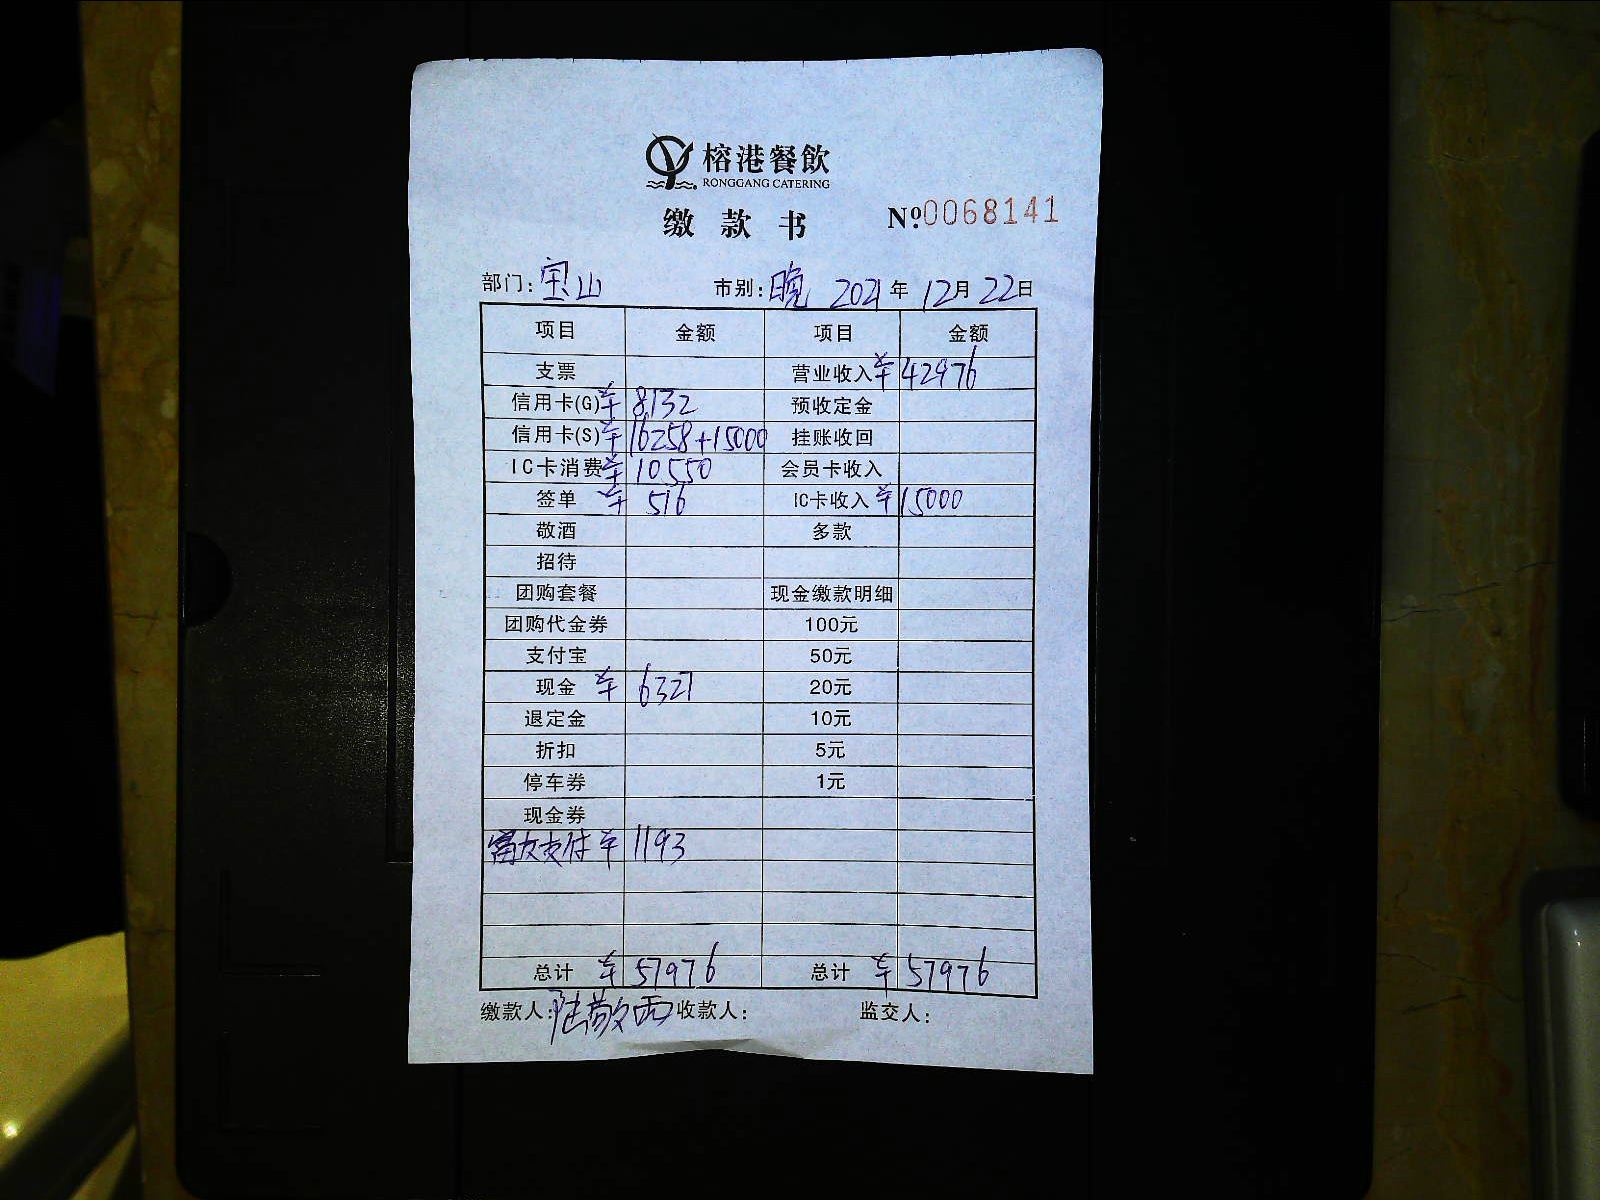 榕港餐飲
RONGGANG CATERING
缴款书 Nº.0068141
部门:宝山 市别:晚 2021年12月22日
项目 金额 项目 金额
支票 营业收入 ¥42976
信用卡(G) ¥8132 预收定金
信用卡(S) ¥16258+15000 挂账收回
IC卡消费 ¥10550 会员卡收入
签单 ¥516 IC卡收入 ¥15000
敬酒 多款
招待
团购套餐 现金缴款明细
团购代金券 100元
支付宝 50元
现金 ¥6327 20元
退定金 10元
折扣 5元
停车券 1元
现金券
富友支付 ¥1193
总计 ¥57976 总计 ¥57976
缴款人:陆敬西 收款人: 监交人: